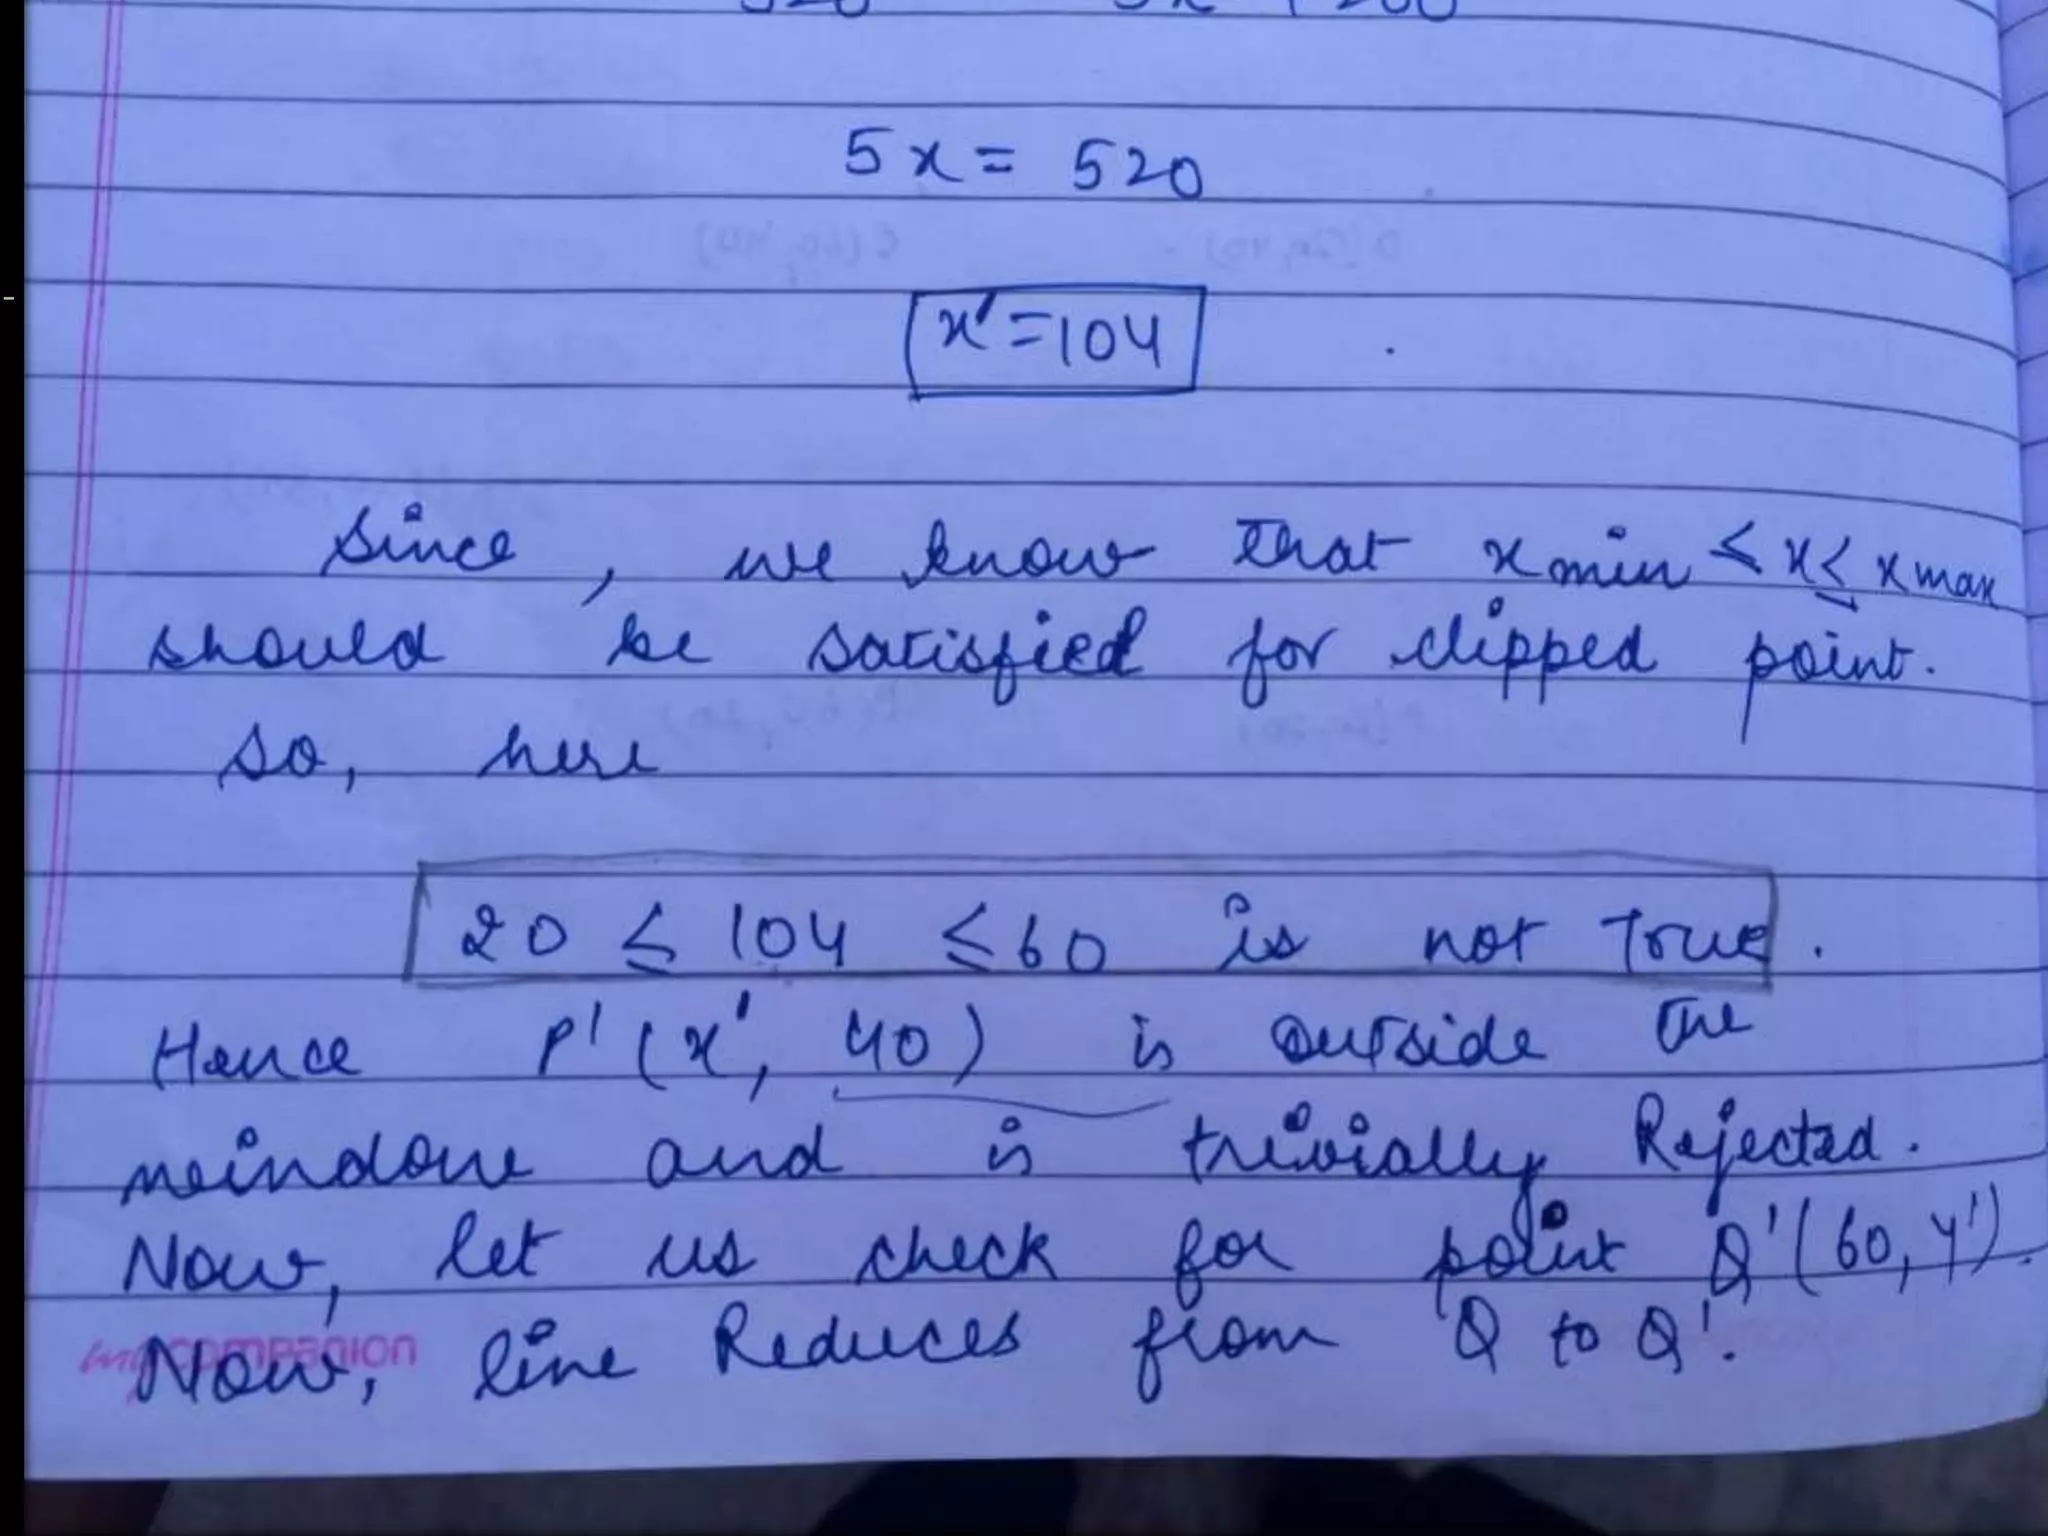 5x = 520
x' = 104
Since, we know that xmin ≤ x ≤ xmax
should be satisfied for clipped point.
so, here
20 ≤ 104 ≤ 60 is not True.
Hence P'(x', 40) is outside the
window and is trivially Rejected.
Now, let us check for point Q'(60, y').
Now, line Reduces from Q to Q'.
companion